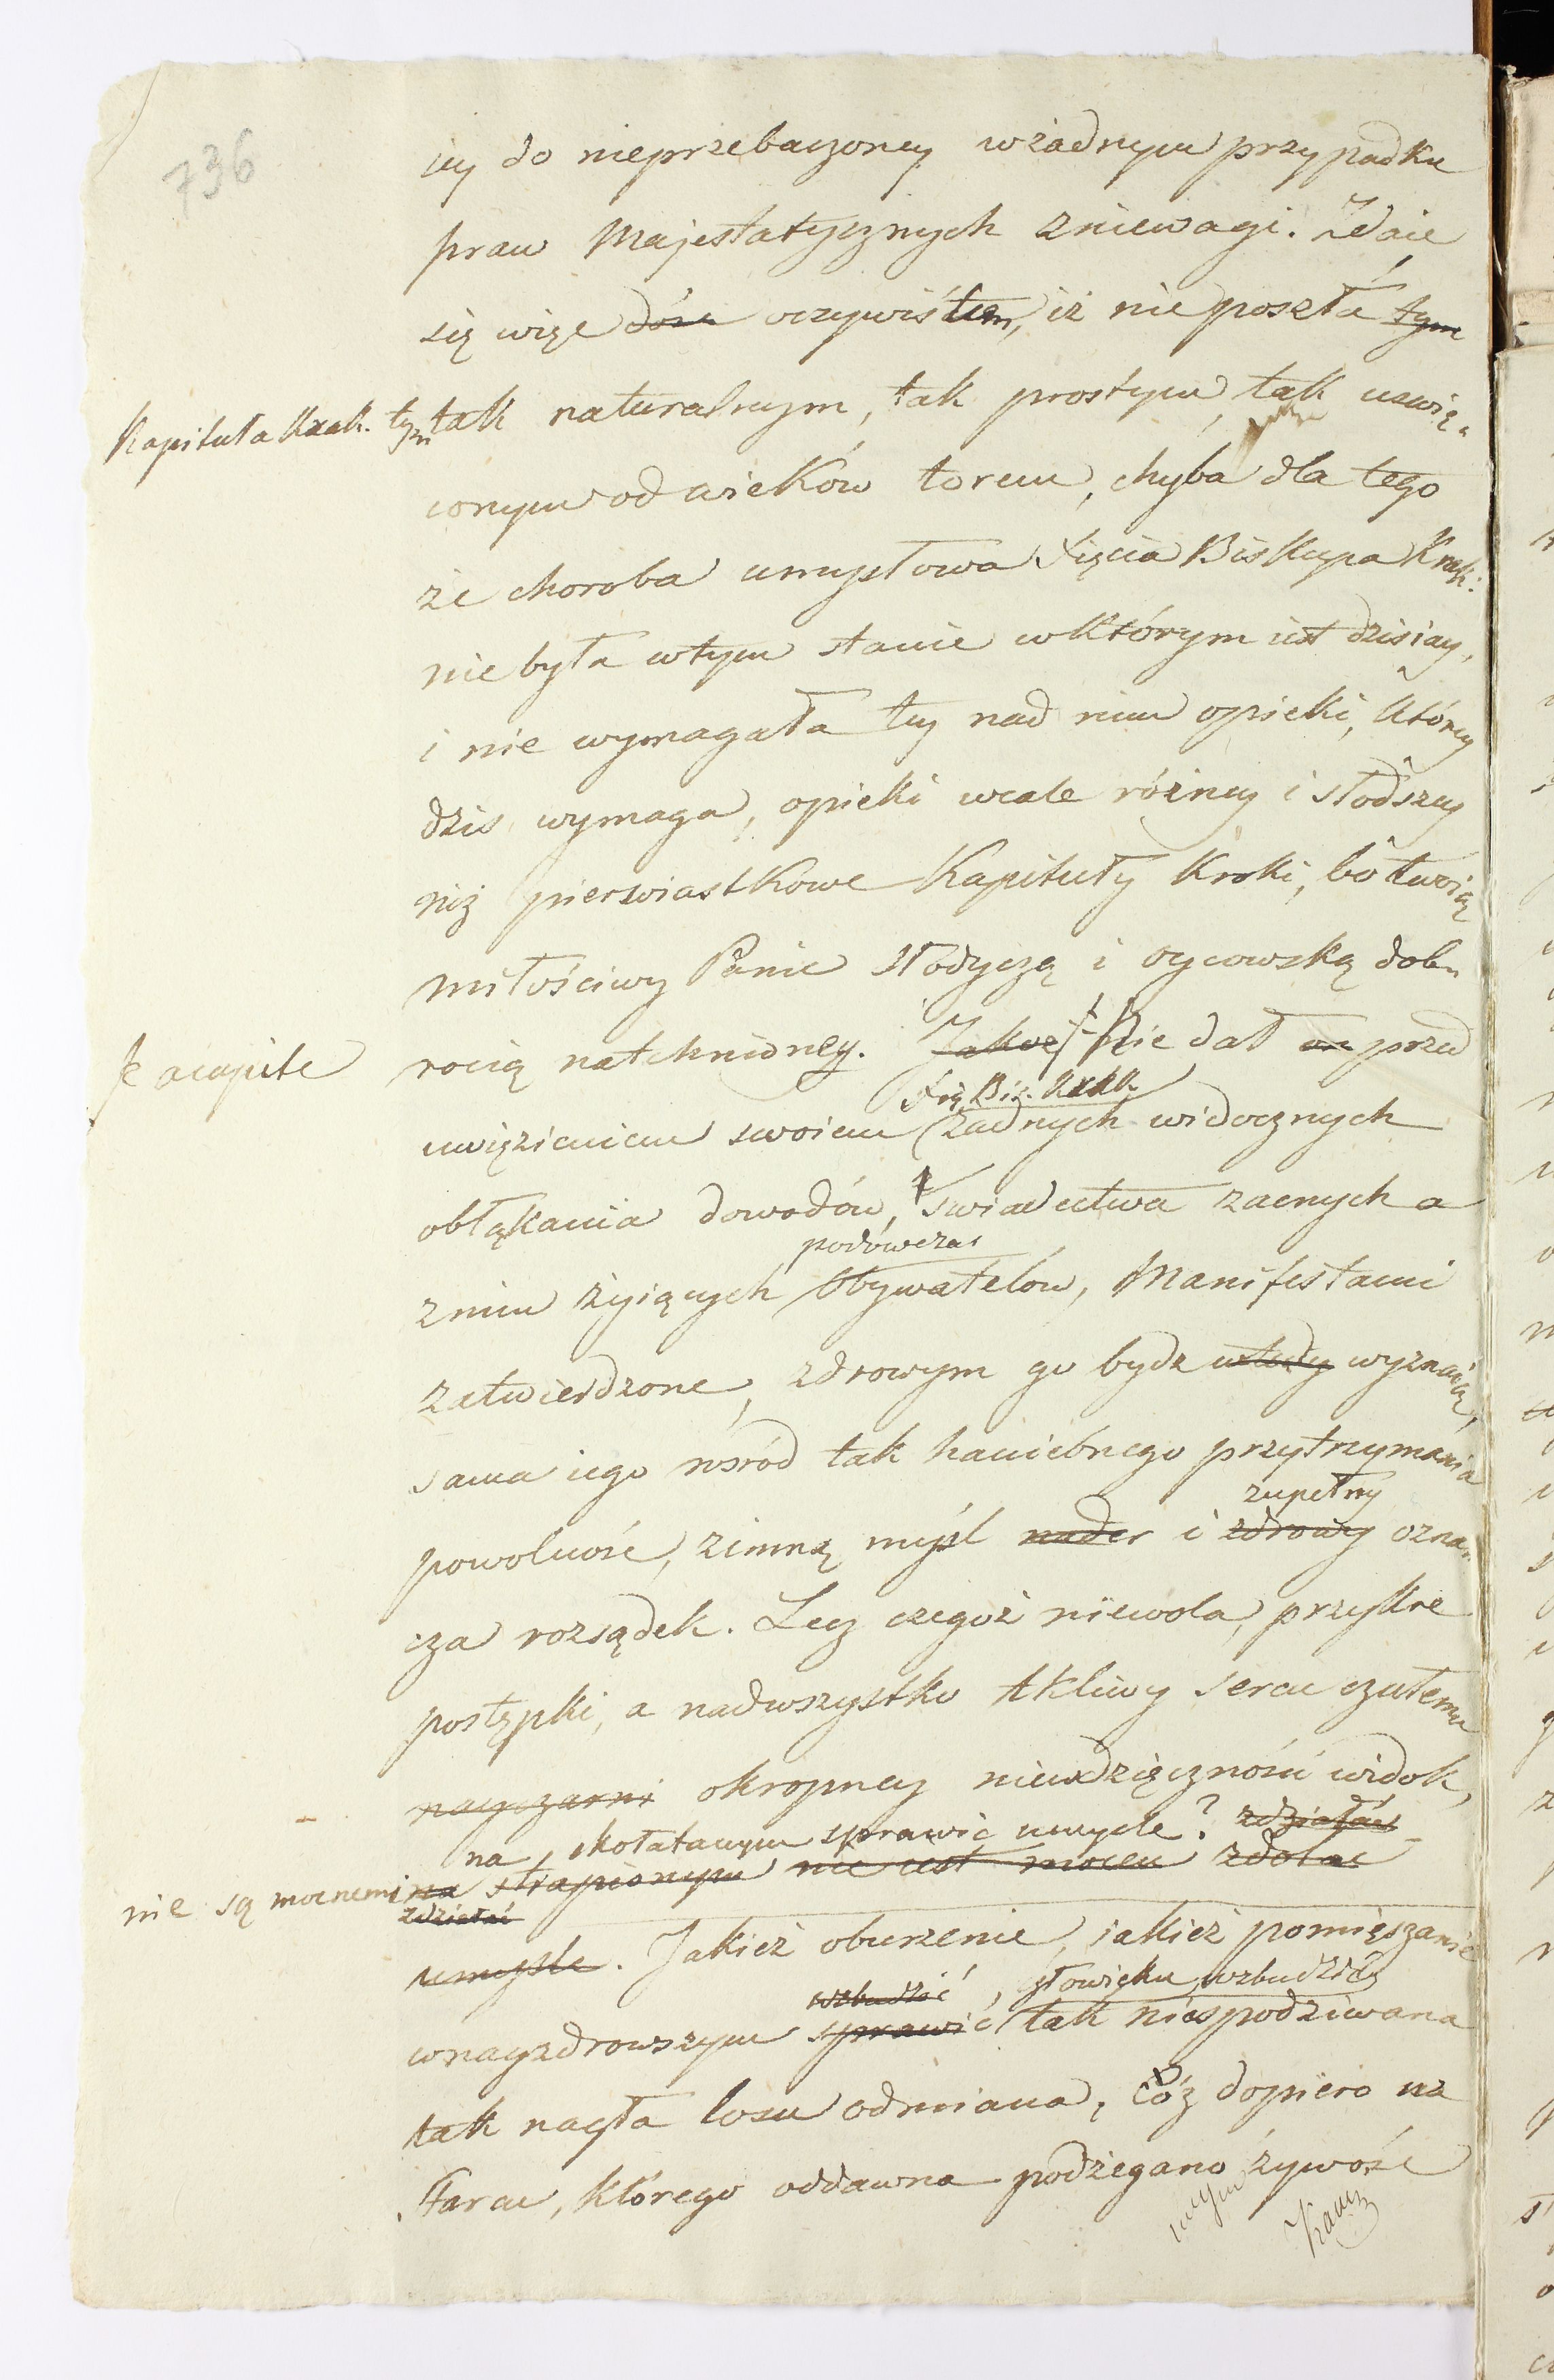 736
cy do nieprzebaczoney wżadnym przypadku
praw Majestatycznych zniewagi. Zdaie
się więc dość oczywistem, iż nie poszła tym
Kapituła Krak. tym tak naturalnym, tak prostym, tak uswię-
conym od wieków torem, chyba dla tego
że choroba umysłowa Xięcia Biskupa Krak:
nie była wtym stanie wktórym iest dzisiay,
i nie wymagała tey nad nim opieki, którey
dziś wymaga, opieki wcale różney i słodszey
niż pierwiastkowe Kapituły Krak:, bo twoią
miłościwy Panie słodyczą i oycowską dob-
a capite rocią natchnioney. Jakoż Nie dał on przed
Xią. Bis. Krak.
uwięzieniem swoiem żadnych widocznych
obłąkania dowodów, świadectwa zacnych a
podówczas
znim żyiących Obywatelów, Manifestami
zatwierdzone, zdrowym go bydz wtedy wyznaią,
sama iego wśród tak haniebnego przytrzymania
zupełny
powolność, zimną myśl nader i zdrowy ozna-
cza rozsądek. Lecz czegoż niewola, przykre
postępki, a nadwszystko tkliwy sercu czułemu
okropney niewdzięczności widok,
na skołatanym sprawić umyśle? zdziałać
nie są mocnemi na strapionym nie iest mocen zdołać
zdziałać
umyśle. Jakież oburzenie, iakież pomięszanie
wzbudzić, człowieku wzbudzić
wnayzdrowszym sprawić tak niespodziwana
tak nagła losu odmiana, cóż dopiero na
starcu, którego oddawna podżegano żywość